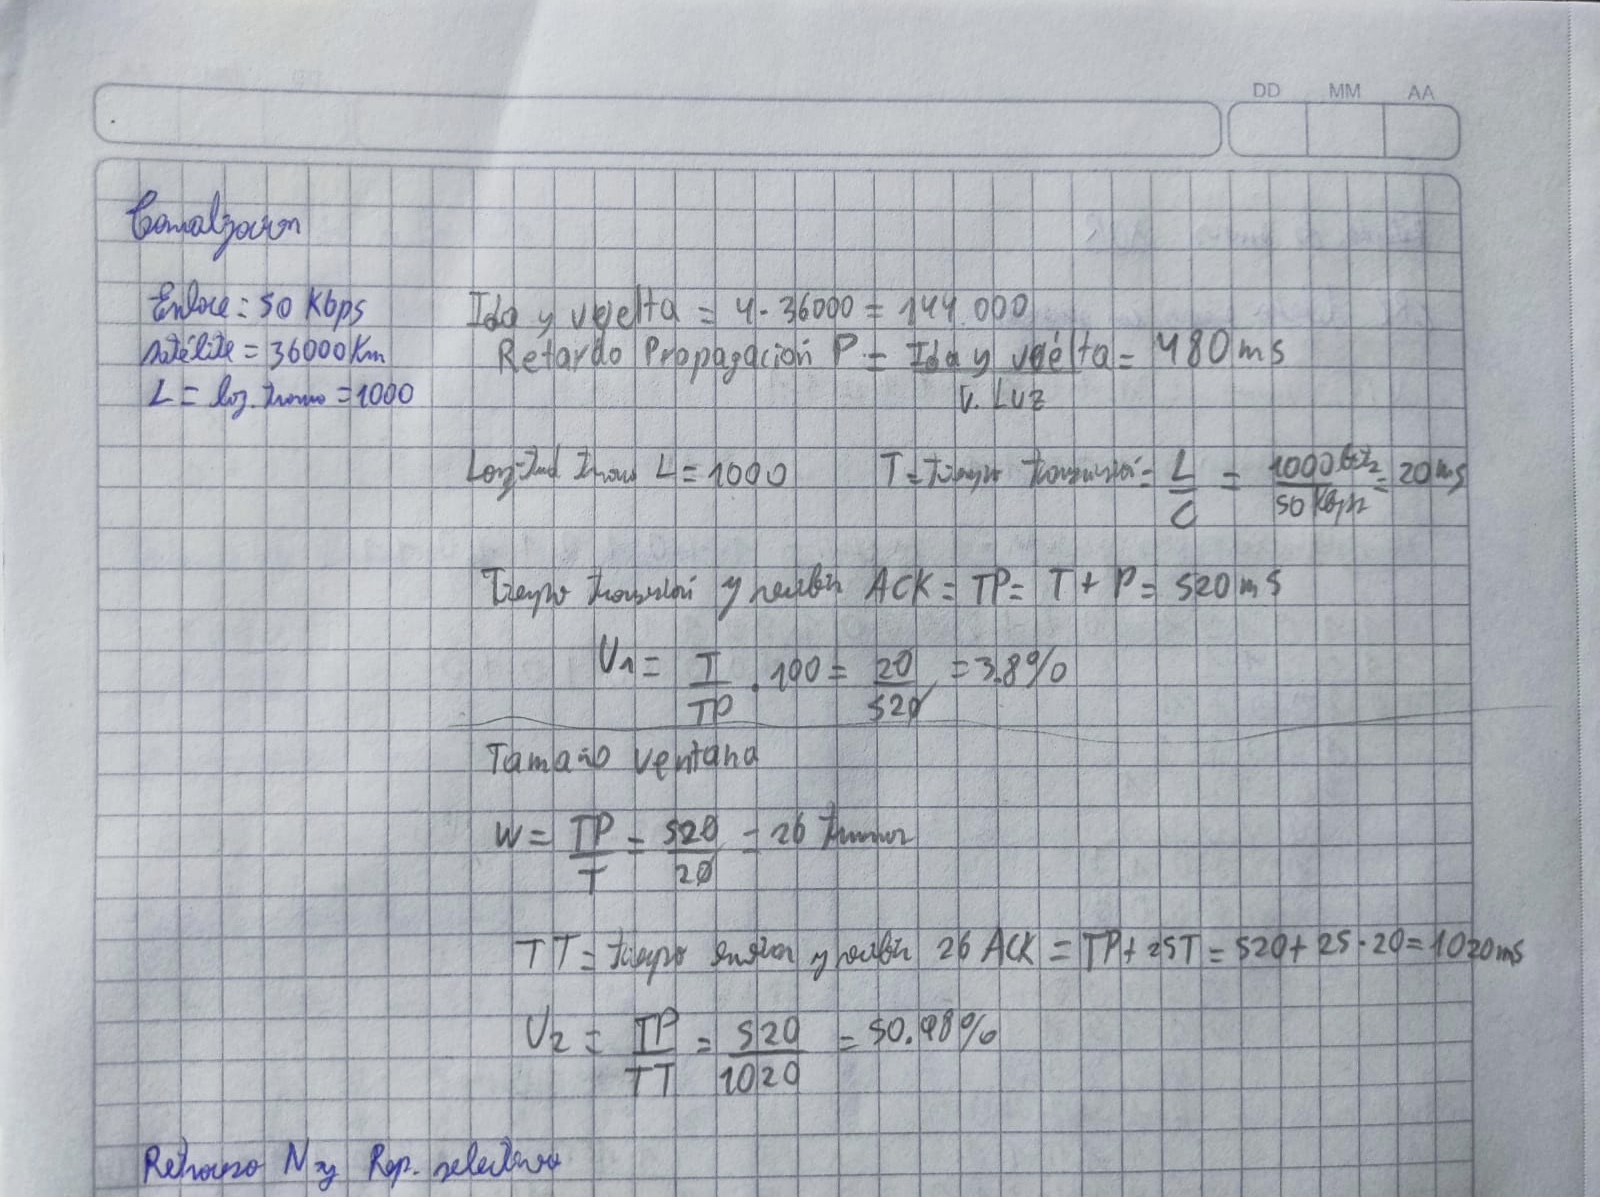 DD MM AA
Canalizacion
Enlace = 50 Kbps
satélite = 36000 Km
L = log. tramo = 1000
Ida y vuelta = 4 · 36000 = 144.000
Retardo Propagación P = Ida y vuelta / V. Luz = 480 ms
Longitud tramo L = 1000 T = tiempo transmisión = L / C = 1000 bits / 50 Kbps = 20 ms
Tiempo transmisión y recibir ACK = TP = T + P = 520 ms
U1 = T / TP · 100 = 20 / 520 = 3.8%
Tamaño ventana
W = TP / T = 520 / 20 = 26 tramas
TT = tiempo enviar y recibir 26 ACK = TP + 25T = 520 + 25 · 20 = 1020 ms
U2 = TP / TT = 520 / 1020 = 50.98%
Retroceso N y Rep. selectiva